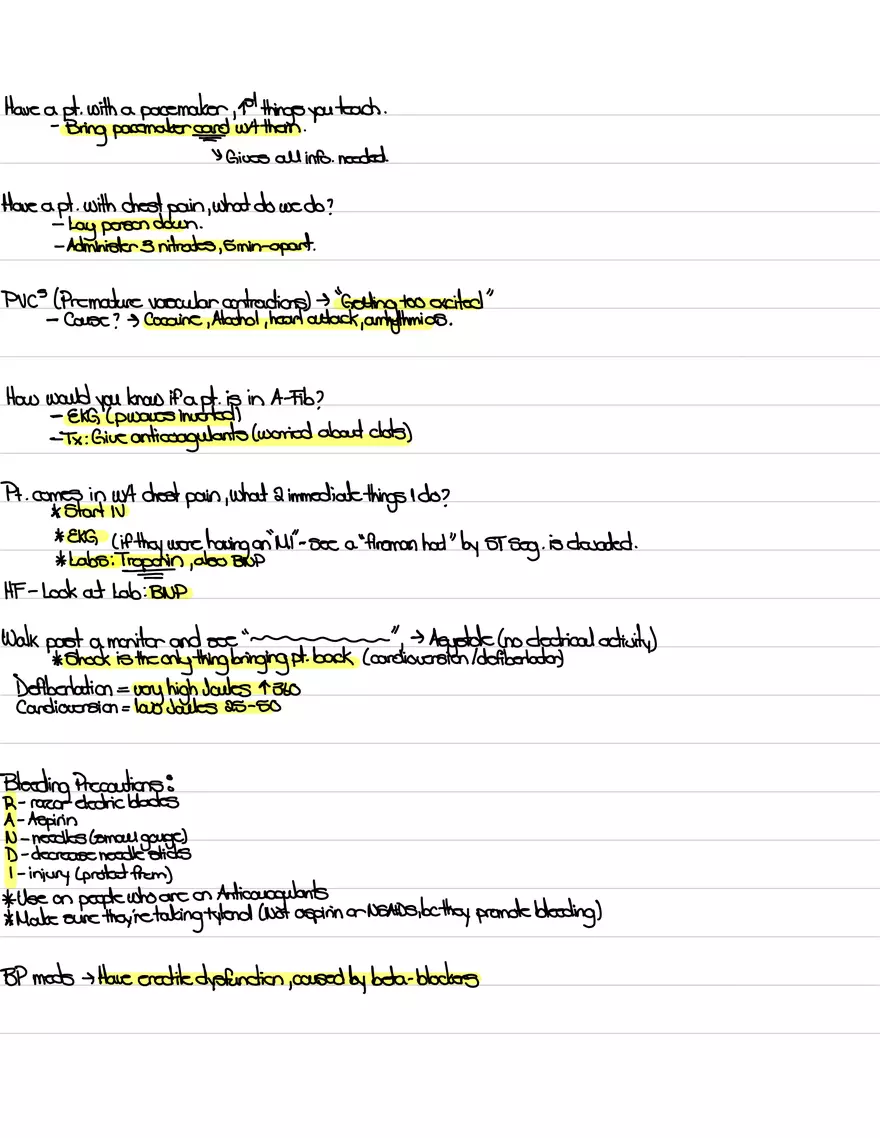 Have a pt. with a pacemaker, 1st things you teach.
- Bring pacemaker card w/t them.
↳ Gives all info. needed.
Have a pt. with chest pain, what do we do?
- Lay person down.
- Administer 3 nitrates, 5 min-apart.
PVCs (Premature vascular contractions) → "Getting too excited"
- Cause? → Cocaine, Alcohol, heart attack, arrhythmias.
How would you know if a pt. is in A-Fib?
- EKG (p waves inverted)
- Tx: Give anticoagulants (worried about clots)
Pt. comes in w/t chest pain, what 2 immediate things I do?
* Start IV
* EKG (if they were having an "MI" - see a "fireman hat" by ST seg. is elevated.
* Labs: Troponin, also BNP
HF - Look at Lab: BNP
Walk past a monitor and see " ", → Asystole (no electrical activity)
* Shock is the only thing bringing pt. back (cardioversion/defiberlador)
Defiberlation = very high Joules ↑ 360
Cardioversion = low Joules 25-50
Bleeding Precautions:
R - razor electric blades
A - Aspirin
N - needles (small gauge)
D - decrease needle sticks
I - injury (protect them)
* Use on people who are on Anticouagulants
* Make sure they're taking tylenol (Not aspirin or NSAIDS, bc they promote bleeding)
BP meds → Have erectile dysfunction, caused by beta-blockers